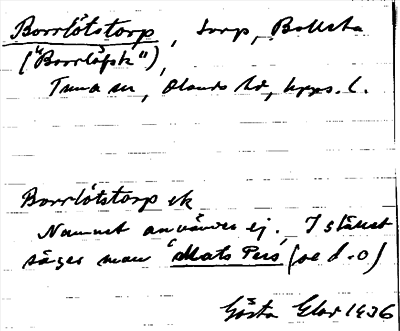 Borrlötstorp, torp, Bolsta
("Borrlöfsk"),
Tuna sn, Olands hd, Upps. l.
Borrlötstorp sk
Namnet användes ej. I stället
säger man 'Mats Pers' (
Gösta Elov 1936